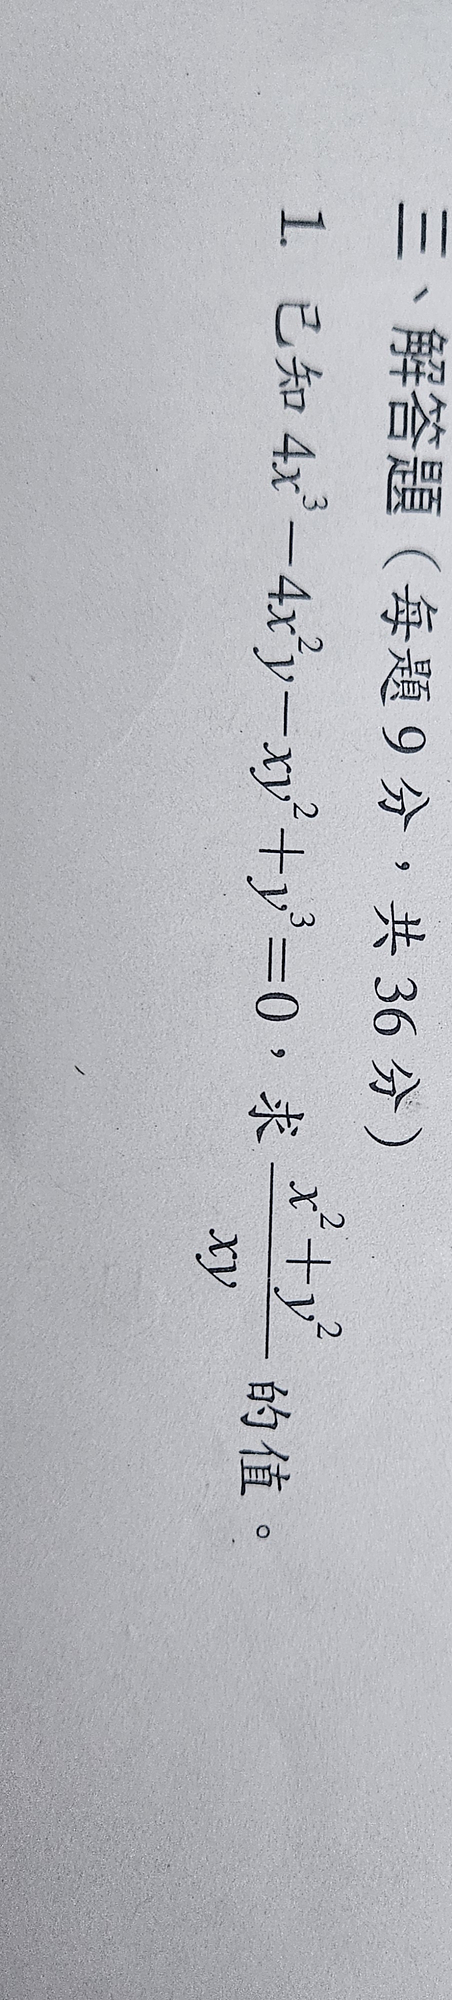 三、解答題（每題9分，共36分）
1. 已知 4x³－4x²y－xy²＋y³＝0，求 (x²＋y²)/(xy) 的值。